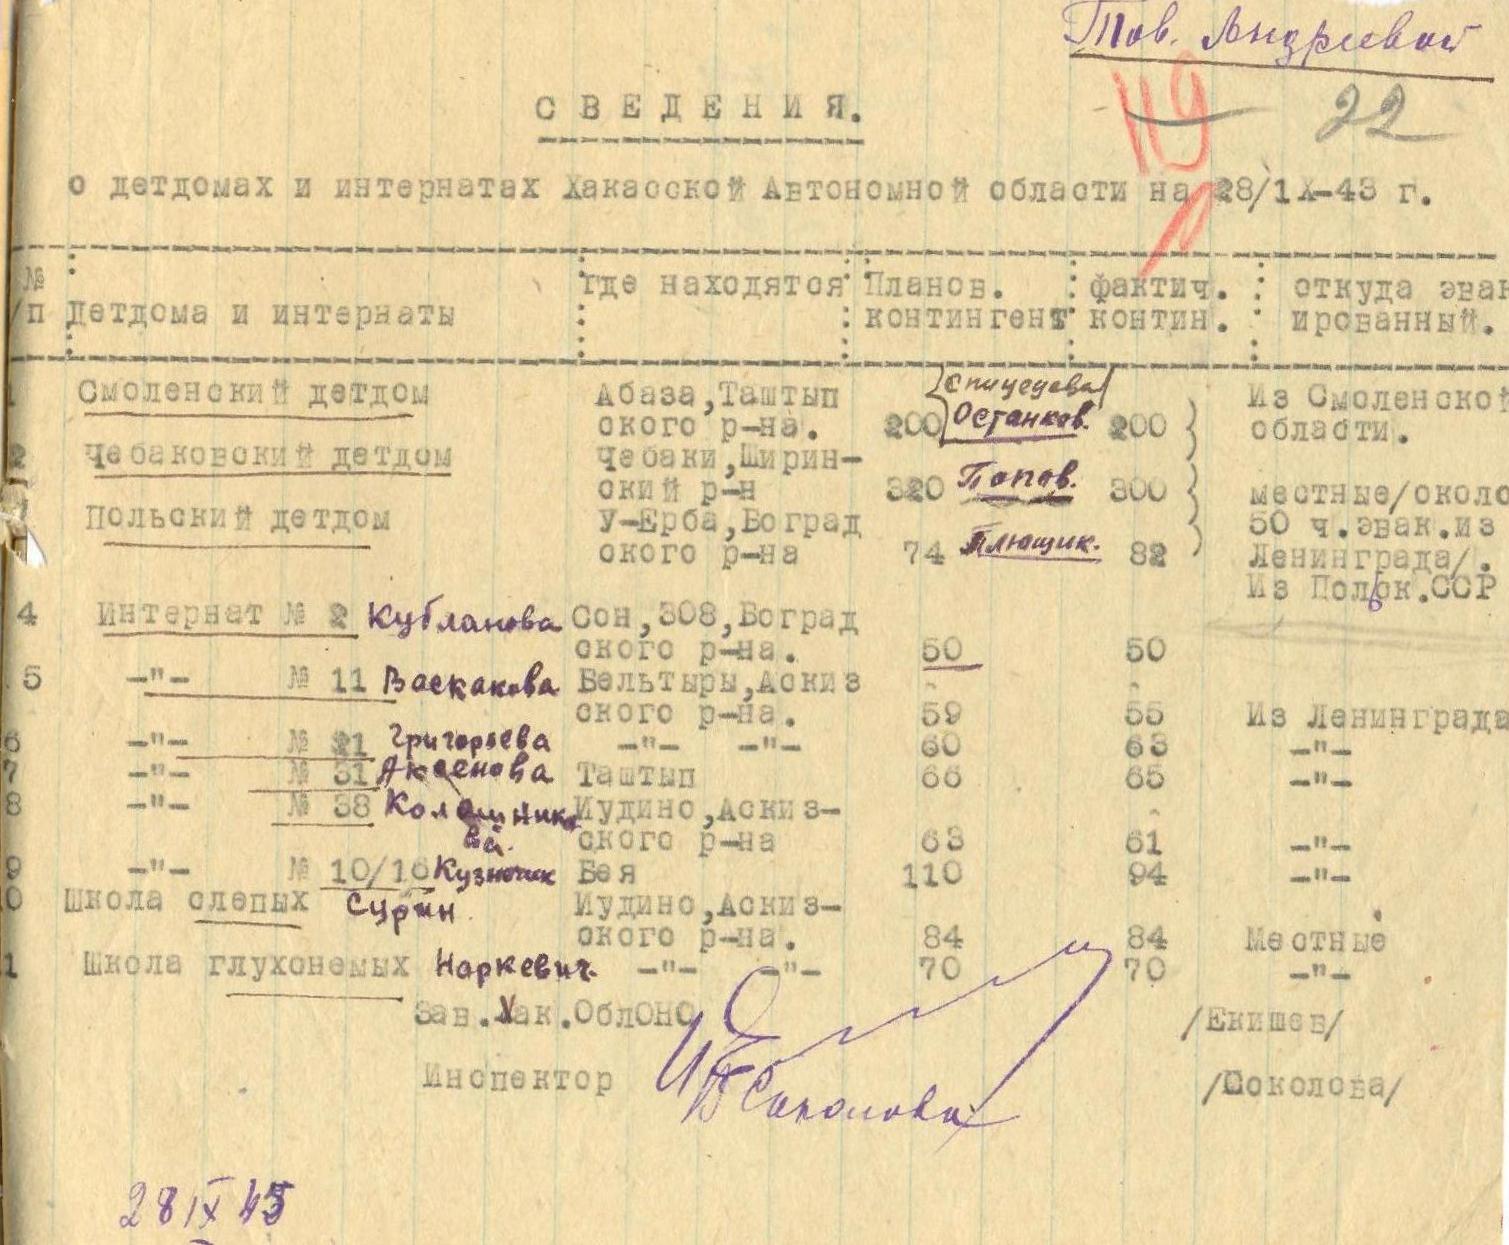 Тов. Андреевой
119 22
СВЕДЕНИЯ.
о детдомах и интернатах Хакасской Автономной области на 28/1X-43 г.
№ где находятся Планов. фактич. откуда эвак
/п Детдома и интернаты контингент контин. ированный.
1 Смоленский детдом Абаза,Таштып Из Смоленской
ского р-на. 200 Останков. 200 области.
2 Чебаковский детдом Чебаки,Ширин-
ский р-н 320 Попов. 300 местные/около
Польский детдом У-Ерба,Боград 50 ч.эвак.из
ского р-на 74 Плющик. 82 Ленинграда/.
Из Польск.ССР
4 Интернат № 2 Кубланова Сон,308,Боград
ского р-на. 50 50
5 -"- № 11 Васкакова Бельтыры,Аскиз
ского р-на. 59 55 Из Ленинграда
6 -"- № 21 Григорьева -"- -"- 60 63 -"-
7 -"- № 31 Аксенова Таштып 66 65 -"-
8 -"- № 38 Колашникова Иудино,Аскиз-
ского р-на 63 61 -"-
9 -"- № 10/16 Кузнечик Бея 110 94 -"-
0 Школа слепых Сурин Иудино,Аскиз-
ского р-на. 84 84 Местные
1 Школа глухонемых Наркевич. -"- -"- 70 70 -"-
Зав.Хак.ОблОНО /Екишев/
Инспектор Соколова /Соколова/
28 IX 43